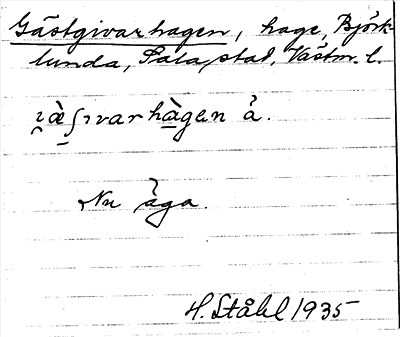 Gästgivarhagen, hage, Björk-
lunda, Sala stad, Västm. l.
å.
Nu äga.
H. Ståhl 1935